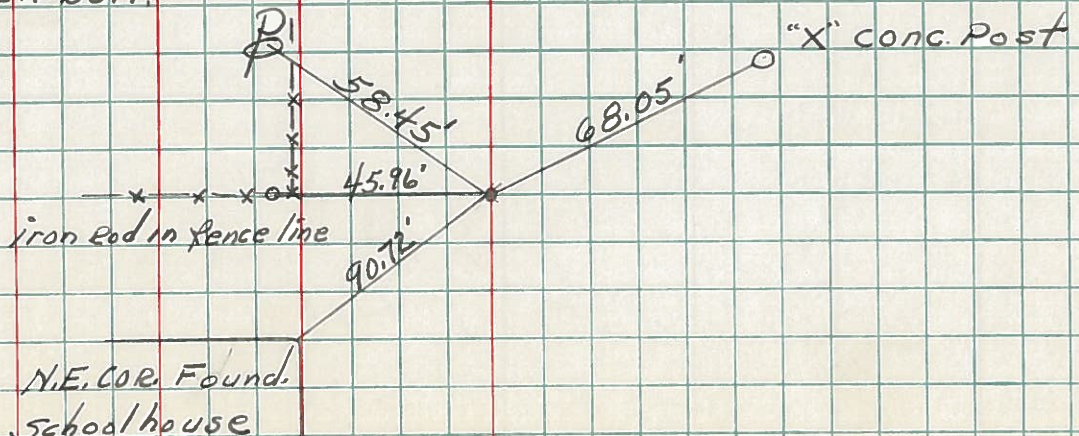 "X" conc. Post
58.45'
68.05'
45.96'
iron rod in fence line
90.72'
N.E. COR. Found.
schoolhouse